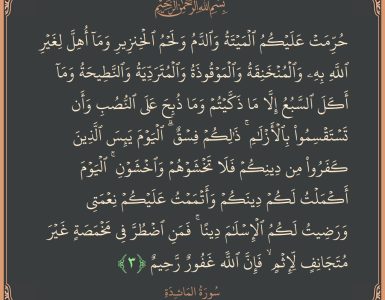 بِسْمِ اللَّهِ الرَّحْمَٰنِ الرَّحِيمِ
حُرِّمَتْ عَلَيْكُمُ الْمَيْتَةُ وَالدَّمُ وَلَحْمُ الْخِنزِيرِ وَمَا أُهِلَّ لِغَيْرِ
اللَّهِ بِهِ وَالْمُنْخَنِقَةُ وَالْمَوْقُوذَةُ وَالْمُتَرَدِّيَةُ وَالنَّطِيحَةُ وَمَا
أَكَلَ السَّبُعُ إِلَّا مَا ذَكَّيْتُمْ وَمَا ذُبِحَ عَلَى النُّصُبِ وَأَن
تَسْتَقْسِمُوا بِالْأَزْلَٰمِ ۚ ذَٰلِكُمْ فِسْقٌ ۗ الْيَوْمَ يَئِسَ الَّذِينَ
كَفَرُوا مِن دِينِكُمْ فَلَا تَخْشَوْهُمْ وَاخْشَوْنِ ۚ الْيَوْمَ
أَكْمَلْتُ لَكُمْ دِينَكُمْ وَأَتْمَمْتُ عَلَيْكُمْ نِعْمَتِي
وَرَضِيتُ لَكُمُ الْإِسْلَٰمَ دِينًا ۚ فَمَنِ اضْطُرَّ فِي مَخْمَصَةٍ غَيْرَ
مُتَجَانِفٍ لِّإِثْمٍ ۙ فَإِنَّ اللَّهَ غَفُورٌ رَّحِيمٌ ﴿٣﴾
سُورَةُ المَائِدَةِ